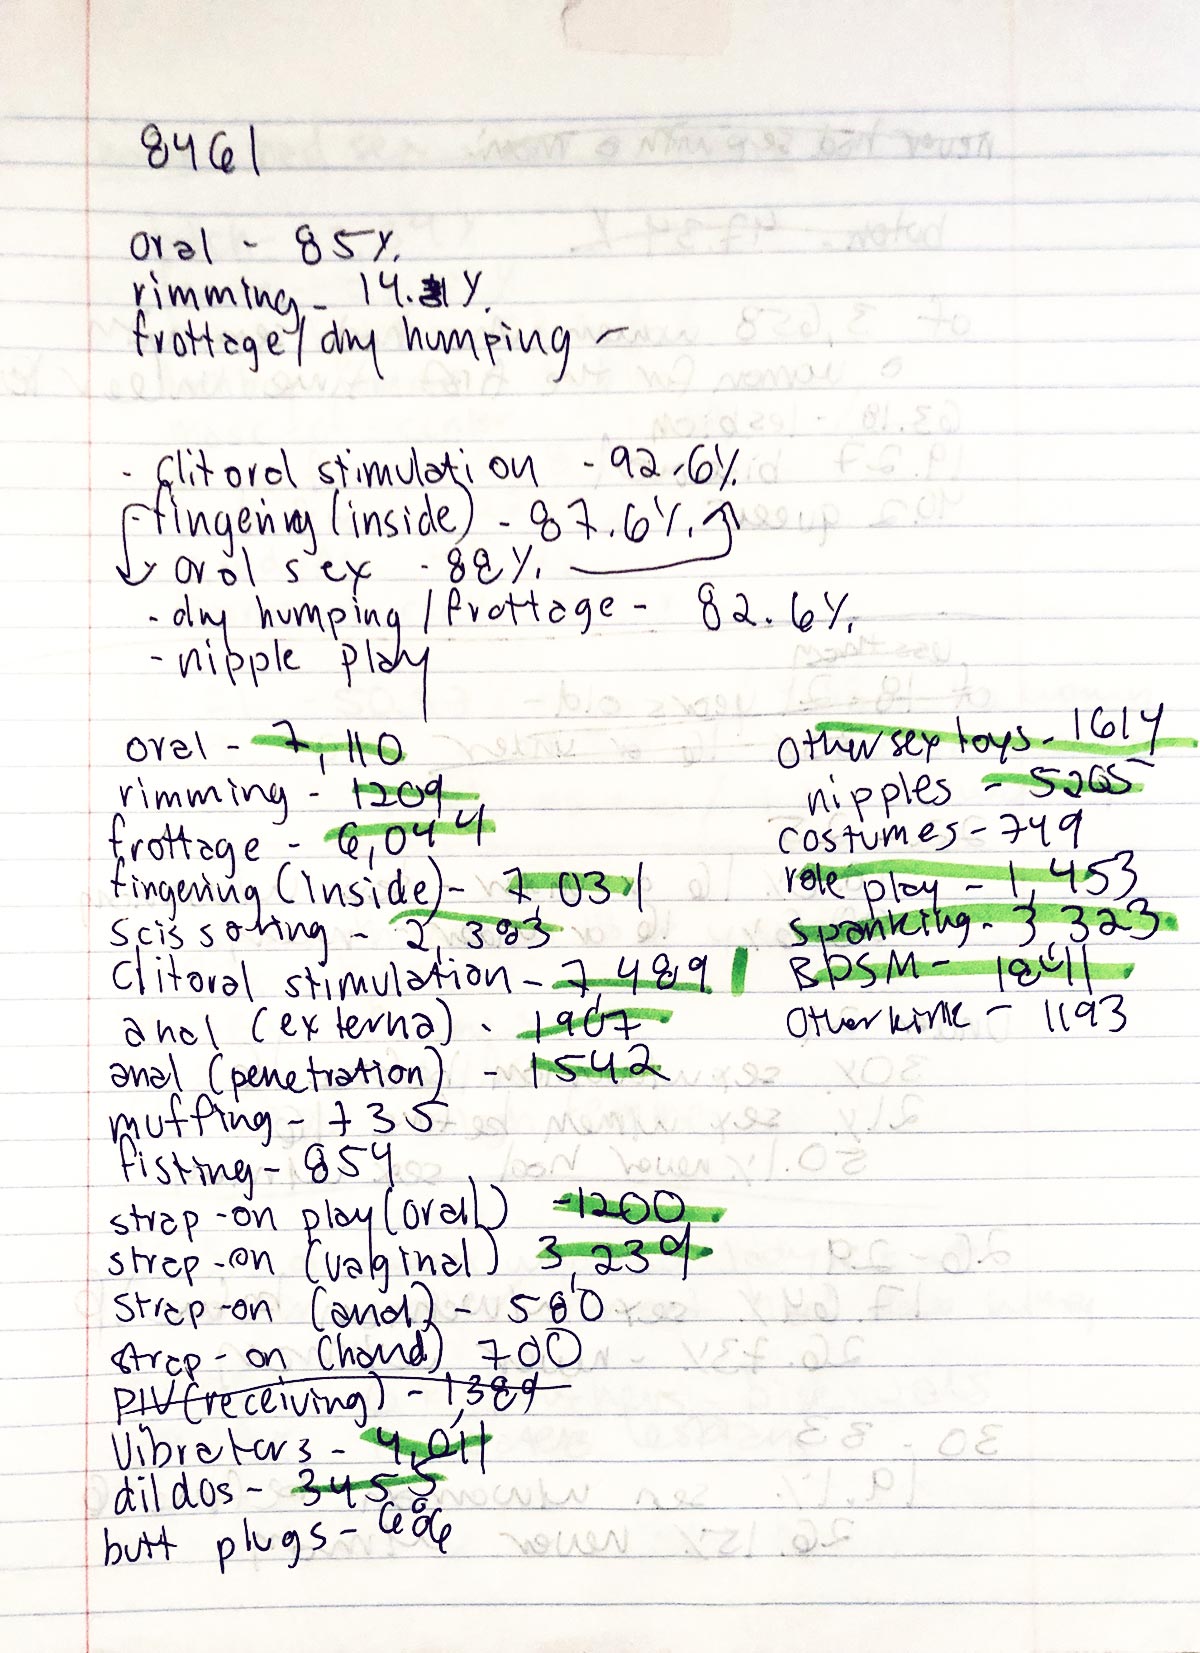 8461
oral - 85%
rimming - 14. %
frottage/dry humping -
- Clitoral stimulation - 92.6%
- fingering (inside) - 87.6%
oral sex - 88%
- dry humping / frottage - 82.6%
- nipple play
oral - 7,110
rimming - 1209
frottage - 6,044
fingering (inside) - 7,031
scissoring - 2,383
Clitoral stimulation - 7,489
anal (externa) - 1907
anal (penetration) - 1542
muffing - 735
fisting - 854
strap-on play (oral) - 1200
strap-on (vaginal) 3,239
strap-on (anal) - 580
strap-on (hand) 700
PIV (receiving) - 1,389
Vibrators - 4,011
dildos - 3455
butt plugs - 606
Other sex toys - 1614
nipples - 5265
costumes - 749
role play - 1,453
spanking - 3,323
BDSM - 1841
Other kink - 1193